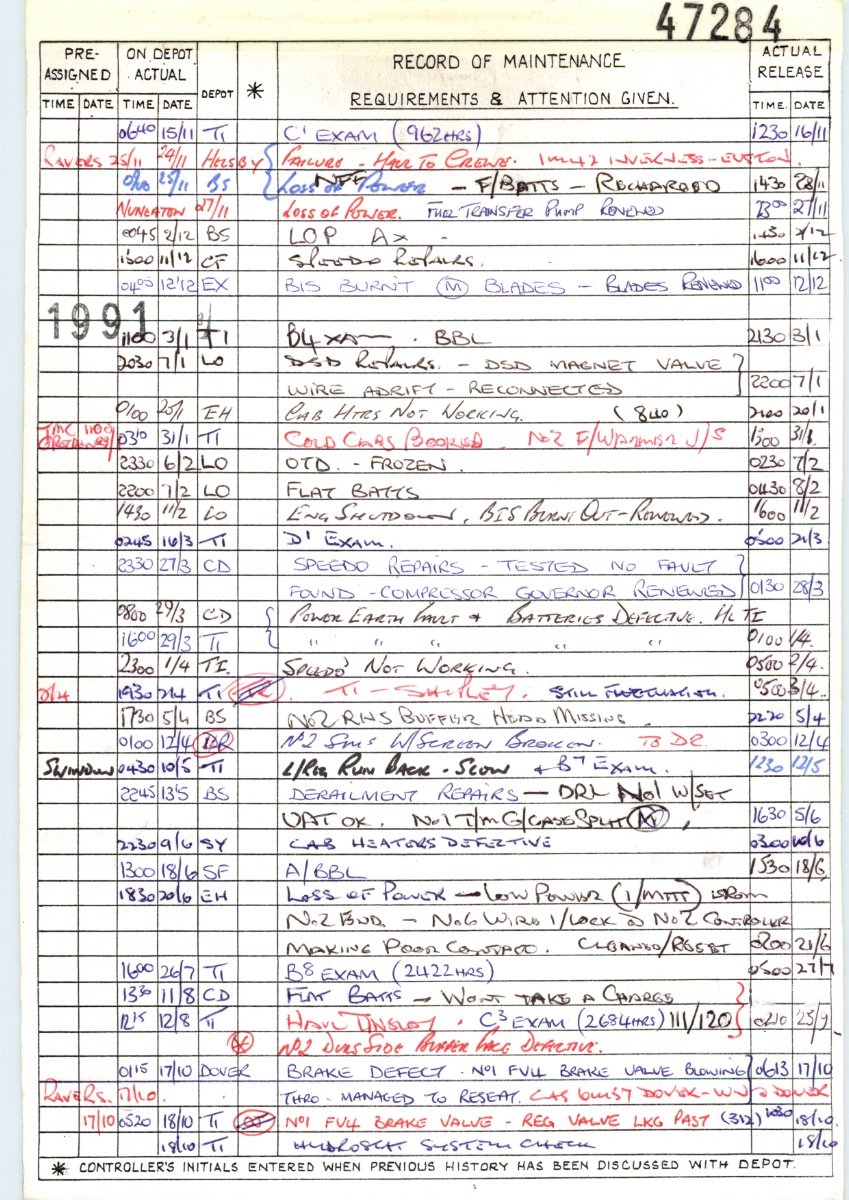 47284
PRE-ASSIGNED ON DEPOT ACTUAL DEPOT * RECORD OF MAINTENANCE REQUIREMENTS & ATTENTION GIVEN. ACTUAL RELEASE
TIME DATE TIME DATE TIME. DATE
0640 15/11 TI C' EXAM (962HRS) 1230 16/11
RAVERS 25/11 24/11 HELSBY FAILURE - HAUL TO CREWE. 1M42 INVERNESS-EUSTON.
25/11 BS LOSS OF POWER NFF - F/BATTS - RECHARGED 1430 28/11
NUNEATON 27/11 LOSS OF POWER. FUEL TRANSFER PUMP RENEWED 27/11
0045 2/12 BS LOP AX
1500 11/12 CF SPEEDO REPAIRS. 1600 11/12
0405 12/12 EX BIS BURNT (M) BLADES - BLADES RENEWED 1100 12/12
1991
1100 3/1 TI B4 BBL 2130 3/1
2030 7/1 LO DSD REPAIRS. - DSD MAGNET VALVE
WIRE ADRIFT - RECONNECTED 2200 7/1
0100 20/1 EH CAB HTRS NOT WORKING. (840) 2100 20/1
0310 31/1 TI COLD CABS BOOKED. NO2 F/WARMER J/S
2330 6/2 LO OTD. - FROZEN. 0230 7/2
2200 7/2 LO FLAT BATTS 0430 8/2
1430 11/2 LO ENG SHUTDOWN, BIS BURNT OUT - RENEWED. 1600 11/2
0245 16/3 TI D' EXAM. 0500 21/3
2330 27/3 CD SPEEDO REPAIRS - TESTED NO FAULT
FOUND - COMPRESSOR GOVERNOR RENEWED 0130 28/3
0800 29/3 CD POWER EARTH FAULT + BATTERIES DEFECTIVE. HL TI
1600 29/3 TI " " " " " 0100 1/4.
2300 1/4 TI. SPEEDO NOT WORKING. 0500 2/4
1930 2/4 TI TI - SHIPLEY. STILL FLUCTUATING. 0500 3/4
1730 5/4 BS NO2 RHS BUFFER HEAD MISSING. 2220 5/4
0100 12/4 DR NO2 W/SCREEN BROKEN. TO DR. 0300 12/4
SWINDON 0430 10/5 TI L/REG RUN BACK - SLOW + B7 EXAM. 1230 12/5
2245 13/5 BS DERAILMENT REPAIRS - DRL NO1 W/SET
UAT OK. NO1 T/M G/CASE SPLIT 1630 5/6
2230 9/6 SY CAB HEATERS DEFECTIVE 0300 10/6
1300 18/6 SF A/BBL 1530 18/6
1830 20/6 EH LOSS OF POWER - LOW POWER FROM
NO2 END. - NO6 WIRE I/LOCK NO2 CONTROLLER
MAKING POOR CONTACT. CLEANED/RESET 0200 21/6
1600 26/7 TI B8 EXAM (2422HRS) 0500 27/7
1330 11/8 CD FLAT BATTS - WONT TAKE A CHARGE
1215 12/8 TI HAUL TINSLEY. C3 EXAM (2684HRS) 111/120 0210 25/9
* NO2 DVRS SIDE BUFFER FACE DEFECTIVE.
0115 17/10 DOVER BRAKE DEFECT. NO1 FV4 BRAKE VALVE BLOWING 0613 17/10
RAVERS. 17/10. THRO - MANAGED TO RESEAT. DOVER
17/10 0520 18/10 TI NO1 FV4 BRAKE VALVE - REG VALVE LKG PAST (312) 1030 18/10.
18/10 TI HYDROSTAT SYSTEM CHECK 18/10
* CONTROLLER'S INITIALS ENTERED WHEN PREVIOUS HISTORY HAS BEEN DISCUSSED WITH DEPOT.